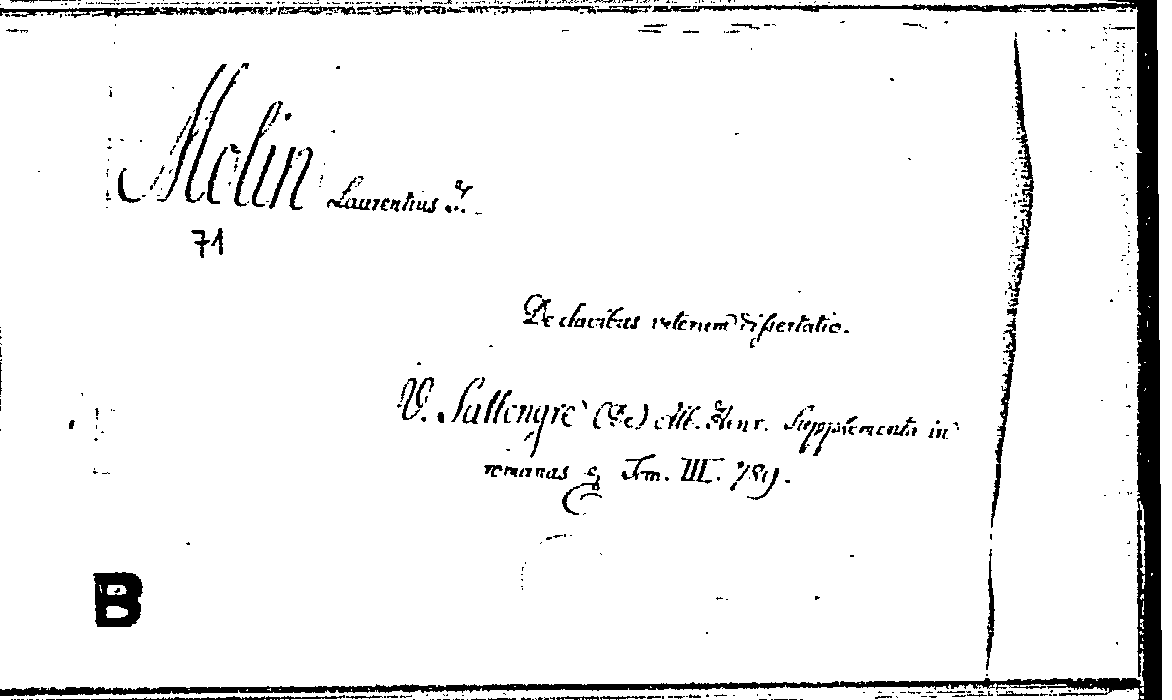 Molin Laurentius T.
71
De clavibus veterum dissertatio.
V. Sallengre (De) Alb. Henr. Supplementa in
romanas Tom. III. 789.
B